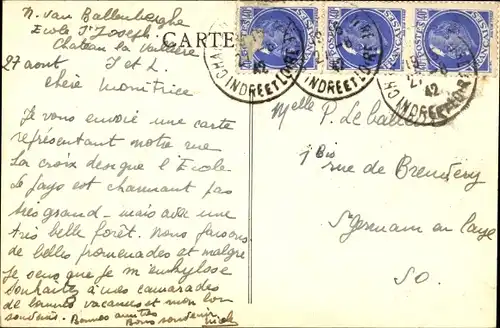 N. van Ballenberghe
Ecole St Joseph
Chateau la Vallière
27 aout I et L.
chère monitrice
Je vous envoie une carte
représentant notre rue
La croix designe l'Ecole.
Le pays est charmant pas
très grand - mais avec une
très belle forêt. Nous faisons
de belles promenades et malgré
je sens que je m'
souhaitez à mes camarades
de bonnes vacances et mon bon
souvenir. Bonnes amitiés
Bons souvenirs Nicole
CARTE
INDRE ET LOIRE
42
INDRE ET LOIRE
42
INDRE ET LOIRE
42
Melle P.
1 Bis
rue de
St Germain en Laye
S.O.